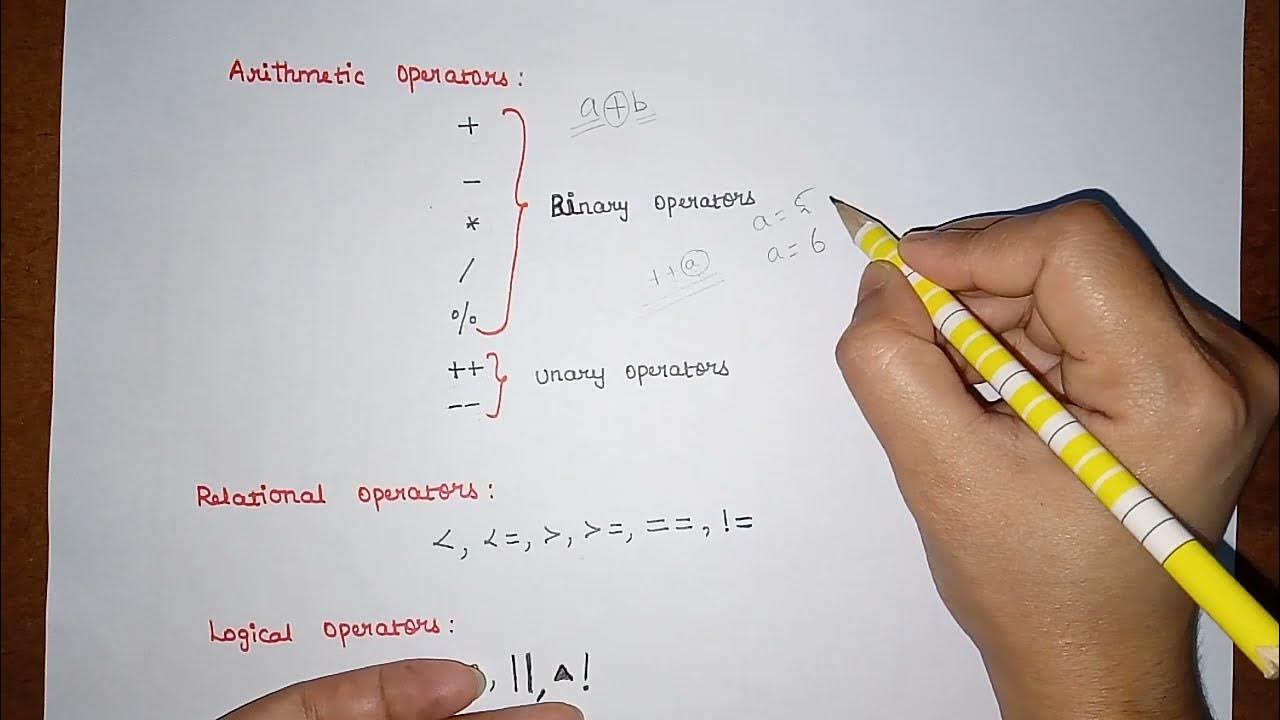 Arithmetic operators:
a+b
+
-
*
/
%
Binary operators
a = 5
++a
a = 6
++
--
unary operators
Relational operators:
<, <=, >, >=, ==, !=
Logical operators:
, ||, !